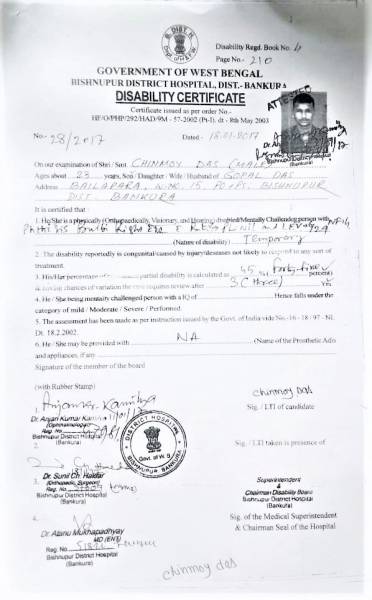 Disability Regd. Book No. 6
Page No.- 210
GOVERNMENT OF WEST BENGAL
BISHNUPUR DISTRICT HOSPITAL, DIST.- BANKURA
DISABILITY CERTIFICATE
Certificate issued as per order No.-
HF/O/PHP/292/HAD/9M - 57-2002 (Pt-I). dt - 8th May 2003
ATTESTED
No:- 28/2017
Dated - 18.01.2017
On our examination of Shri / Smt. CHINMOY DAS (MALE)
Aged about 23 years, Son / Daughter / Wife / Husband of GOPAL DAS
Address BAILAPARA, W.NO. 15, PO+PS. BISHNUPUR
DIST. BANKURA
It is certified that
1. He/She is a physically (Orthopaedically, Visionary, and Hearing-disabled/Mentally Challenged person with
(Nature of disability) Temporary
2. The disability reportedly is congenital/caused by injury/deseases not likely to respond to any sort of
treatment.
3. His/Her percentage of partial disability is calculated as 45 (forty five percent)
chances of variation require review after 3 (three) Yrs
4. He / She being mentally challenged person with a IQ of Hence falls under the
category of mild / Moderate / Severe / Performed
5. The assessment has been made as per instruction issued by the Govt. of India vide No.-16 - 18 / 97 - NI.
Dt. 18.2.2002.
6. He/She may be provided with NA (Name of the Prosthetic Adio
and appliances, if any
Signature of the member of the board
(with Rubber Stamp)
1.
Dr. Anjan Kumar Kamilya
(Ophthalmologist)
Reg. No.
Bishnupur District Hospital
(Bankura)
chinmoy das
Sig. / LTI of candidate
DISTRICT HOSPITAL
Govt. of W. B.
BISHNUPUR BANKURA
Sig. / LTI taken in presence of
2.
Dr. Sunil Ch. Haldar
(Orthopedic Surgeon)
Reg. No.
Bishnupur District Hospital
(Bankura)
Superintendent
&
Chairman Disability Board
Bishnupur District Hospital
(Bankura)
Sig. of the Medical Superintendent
& Chairman Seal of the Hospital
4.
Dr. Atanu Mukhapadhyay
MD (ENT)
Reg. No.
Bishnupur District Hospital
(Bankura)
chinmoy das